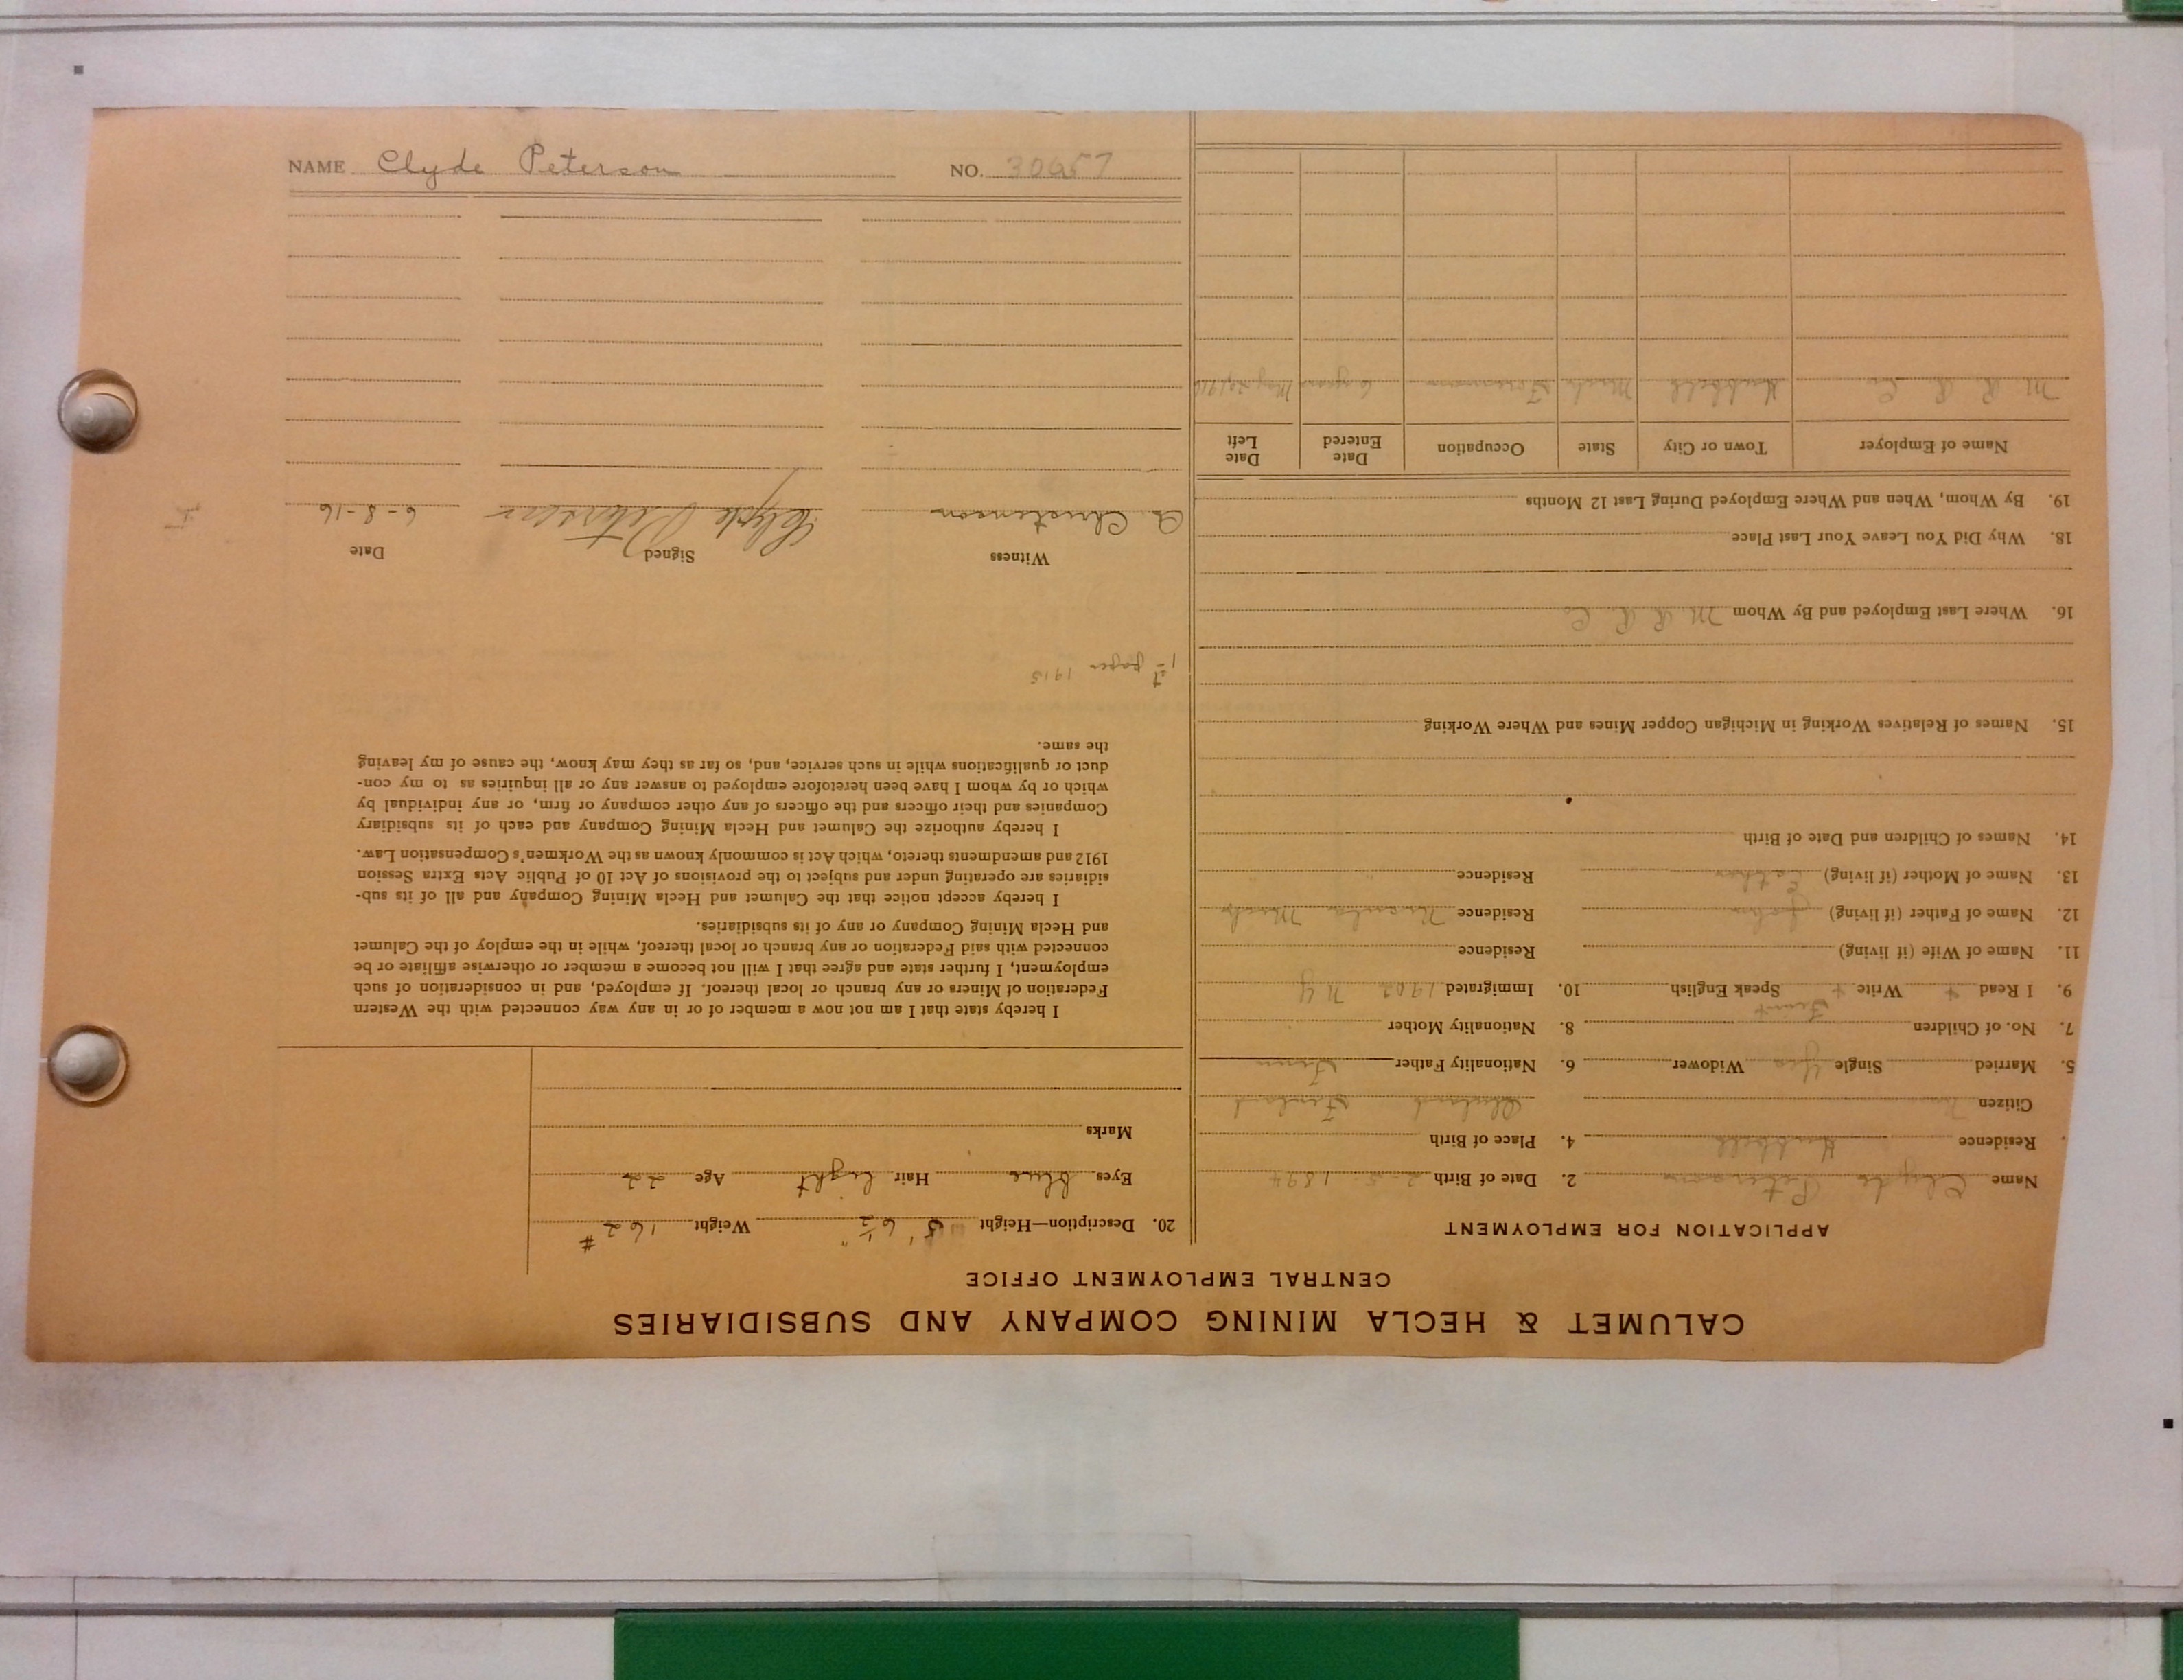 CALUMET & HECLA MINING COMPANY AND SUBSIDIARIES
CENTRAL EMPLOYMENT OFFICE
APPLICATION FOR EMPLOYMENT
Name Clyde Peterson 2. Date of Birth 1894
Residence Hubbell 4. Place of Birth
Citizen Finland
5. Married Single Yes Widower 6. Nationality Father Finn
7. No. of Children 8. Nationality Mother
9. I Read + Write + Speak English 10. Immigrated 1902 N Y
11. Name of Wife (if living) Residence
12. Name of Father (if living) John Residence Mich
13. Name of Mother (if living) Residence " "
14. Names of Children and Date of Birth
15. Names of Relatives Working in Michigan Copper Mines and Where Working
16. Where Last Employed and By Whom M R R Co
18. Why Did You Leave Your Last Place
19. By Whom, When and Where Employed During Last 12 Months
Name of Employer Town or City State Occupation Date Entered Date Left
M. R. R. Co Hubbell Mich 6 years May
20. Description—Height 5' 6½" Weight 162 #
Eyes blue Hair light Age 22
Marks
I hereby state that I am not now a member of or in any way connected with the Western
Federation of Miners or any branch or local thereof. If employed, and in consideration of such
employment, I further state and agree that I will not become a member or otherwise affiliate or be
connected with said Federation or any branch or local thereof, while in the employ of the Calumet
and Hecla Mining Company or any of its subsidiaries.
I hereby accept notice that the Calumet and Hecla Mining Company and all of its sub-
sidiaries are operating under and subject to the provisions of Act 10 of Public Acts Extra Session
1912 and amendments thereto, which Act is commonly known as the Workmen's Compensation Law.
I hereby authorize the Calumet and Hecla Mining Company and each of its subsidiary
Companies and their officers and the officers of any other company or firm, or any individual by
which or by whom I have been heretofore employed to answer any or all inquiries as to my con-
duct or qualifications while in such service, and, so far as they may know, the cause of my leaving
the same.
1st paper 1915
Witness Signed Date
Clyde Peterson 6-8-16
NAME Clyde Peterson NO. 30957